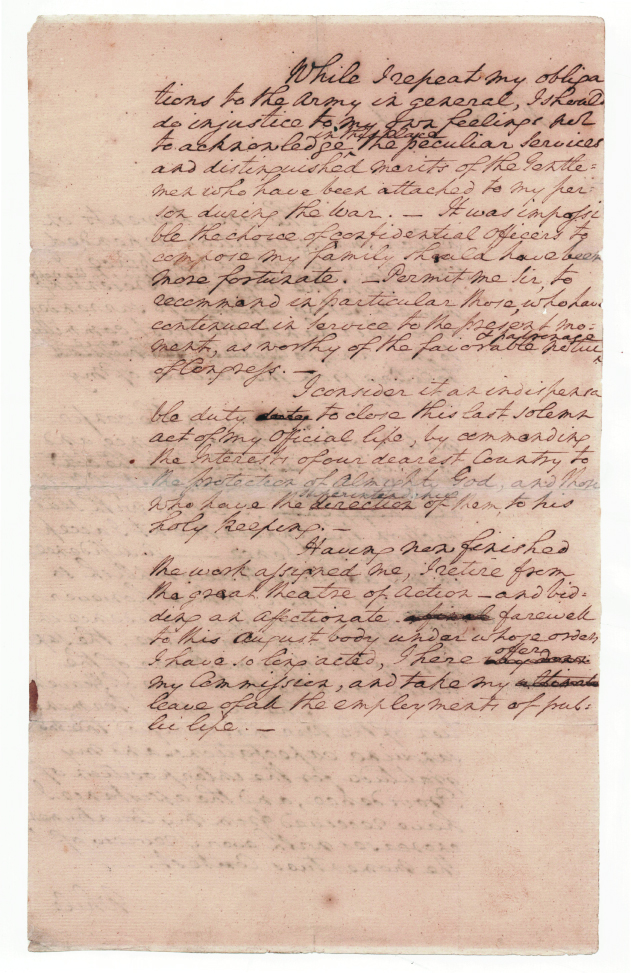 While I repeat my obliga
tions to the Army in general, I should
do injustice to my own feelings not
in this place
to acknowledge the peculiar Services
and distinguished merits of the Gentle=
men who have been attached to my per=
son during the War. — It was impossi
ble the choice of confidential Officers to
compose my family should have been
more fortunate. — Permit me Sir, to
recommend in particular those, who have
continued in Service to the present mo=
& patronage
ment, as worthy of the favorable notice
of Congress. —
I consider it an indispensa
ble duty duty to close this last solemn
act of my Official life, by commending
the Interests of our dearest Country to
the protection of Almighty God, and those
Superintendence
who have the direction of them, to his
holy keeping. —
Having now finished
the work assigned me, I retire from
the great theatre of Action — and bid=
ding an Affectionate a final farewell
to this August body under whose orders
offer
I have so long acted, I here
my Commission, and take my ultimate
leave of all the employments of pub=
lic life. —